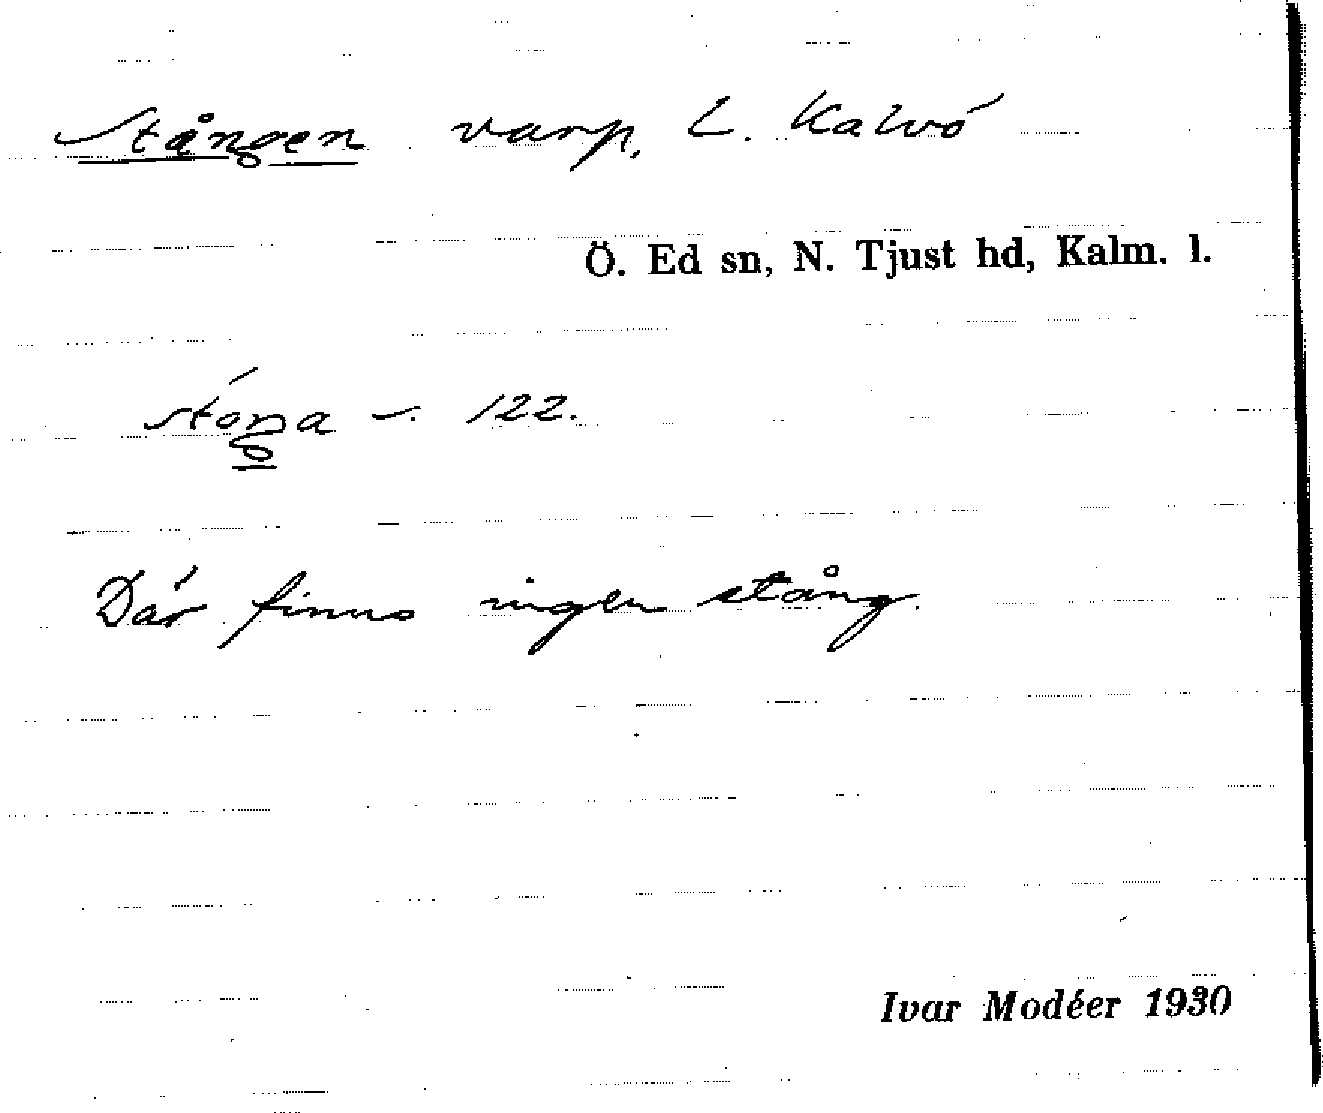 Stången varp, L. Kalvö
Ö. Ed sn, N. Tjust hd, Kalm. l.
122.
Där finns ingen stång.
Ivar Modéer 1930